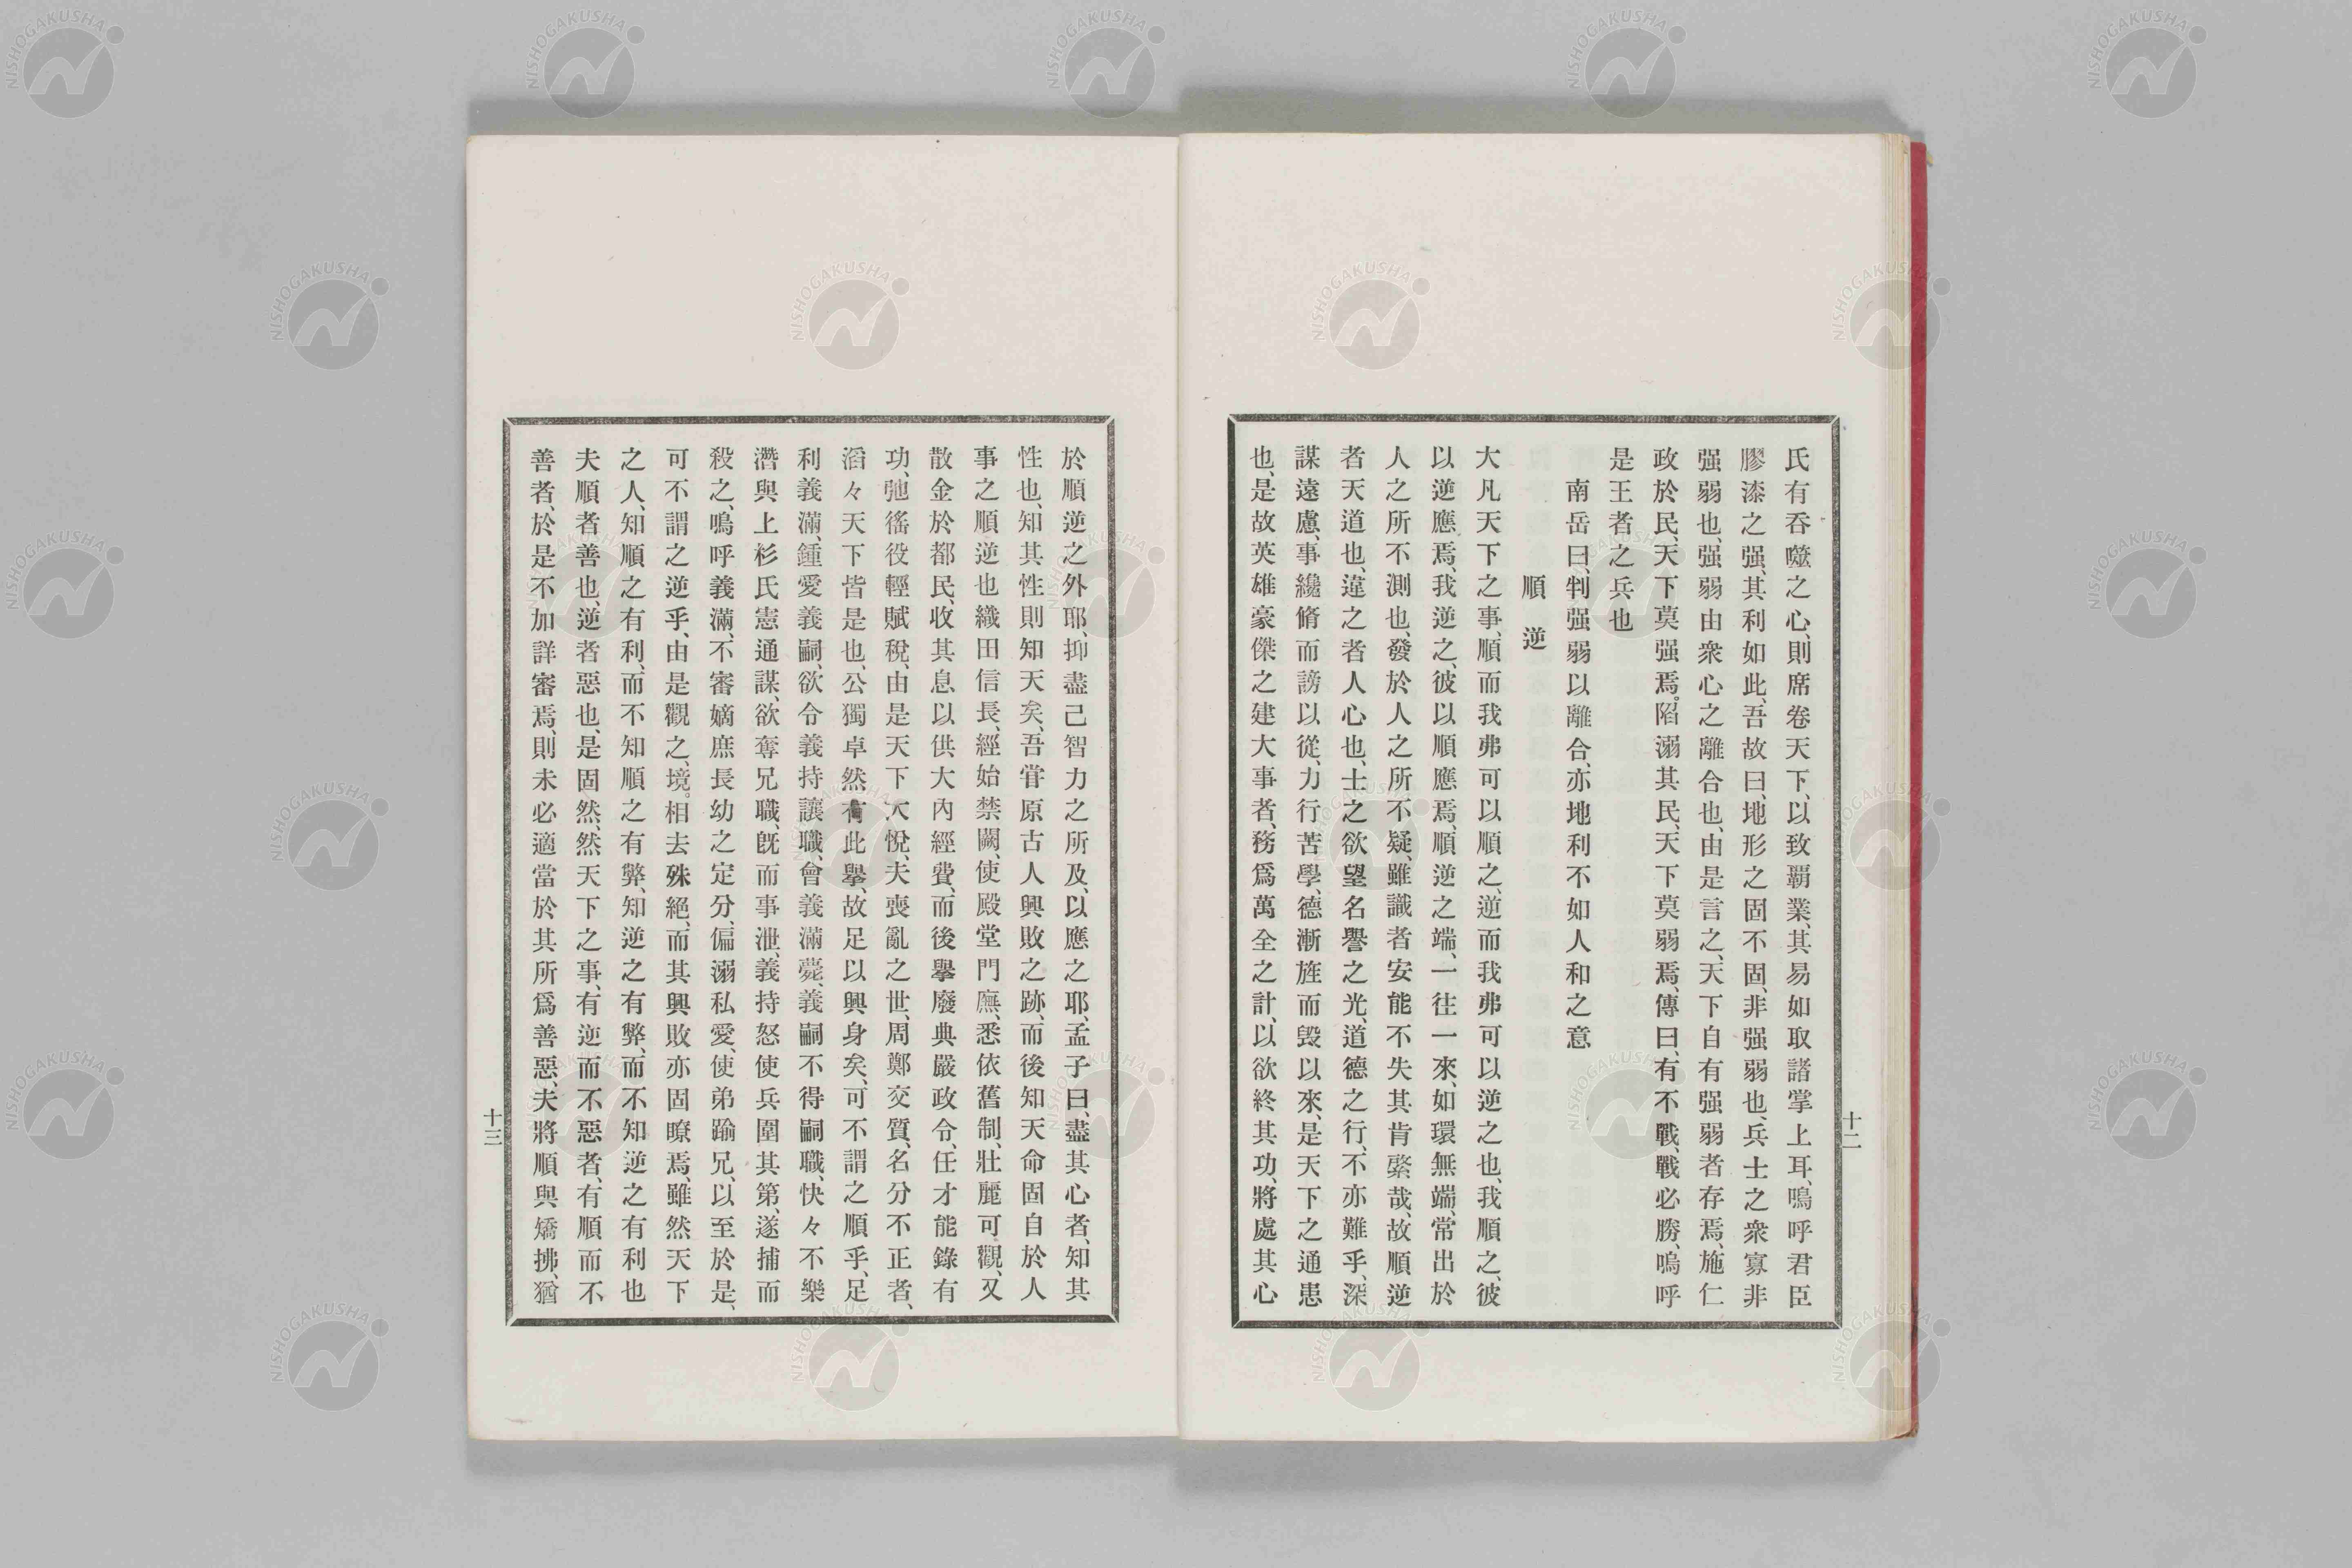 氏有呑噬之心、則席卷天下、以致覇業、其易如取諸掌上耳、鳴呼君臣
膠漆之强、其利如此、吾故曰、地形之固不固、非强弱也、兵士之衆寡非
强弱也、强弱由衆心之離合也、由是言之、天下自有强弱者存焉、施仁
政於民、天下莫强焉。陷溺其民、天下莫弱焉、傳曰、有不戰、戰必勝、嗚呼
是王者之兵也
南岳曰、判强弱以離合、亦地利不如人和之意
順逆
大凡天下之事、順而我弗可以順之、逆而我弗可以逆之也、我順之、彼
以逆應焉、我逆之、彼以順應焉、順逆之端、一往一來、如環無端、常出於
人之所不測也、發於人之所不疑、雖識者安能不失其肯綮哉、故順逆
者天道也、違之者人心也、士之欲望名譽之光、道德之行、不亦難乎、深
謀遠慮、事纔脩而謗以從、力行苦學、德漸旌而毀以來、是天下之通患
也、是故英雄豪傑之建大事者、務爲萬全之計、以欲終其功、將處其心
十二
於順逆之外耶、抑盡己智力之所及、以應之耶、孟子曰、盡其心者、知其
性也、知其性則知天矣、吾甞原古人興敗之跡、而後知天命固自於人
事之順逆也織田信長、經始禁闕、使殿堂門廡、悉依舊制、壯麗可觀、又
散金於都民、收其息以供大內經費、而後擧廢典嚴政令、任才能錄有
功、弛徭役輕賦稅、由是天下大悅、夫喪亂之世、周鄭交質、名分不正者、
滔々天下皆是也、公獨卓然有此擧、故足以興身矣、可不謂之順乎、足
利義滿、鍾愛義嗣、欲令義持讓職、會義滿薨、義嗣不得嗣職、快々不樂
潛與上杉氏憲通謀、欲奪兄職、旣而事泄、義持怒使兵圍其第、遂捕而
殺之、嗚呼義滿、不審嫡庶長幼之定分、偏溺私愛、使弟踰兄、以至於是、
可不謂之逆乎、由是觀之、境。相去殊絕、而其興敗亦固瞭焉、雖然天下
之人、知順之有利、而不知順之有弊、知逆之有弊、而不知逆之有利也
夫順者、善也、逆者惡也、是固然、然天下之事、有逆而不惡者、有順而不
善者、於是不加詳審焉、則未必適當於其所爲善惡、夫將順與矯拂、猶
十三
NISHOGAKUSHA